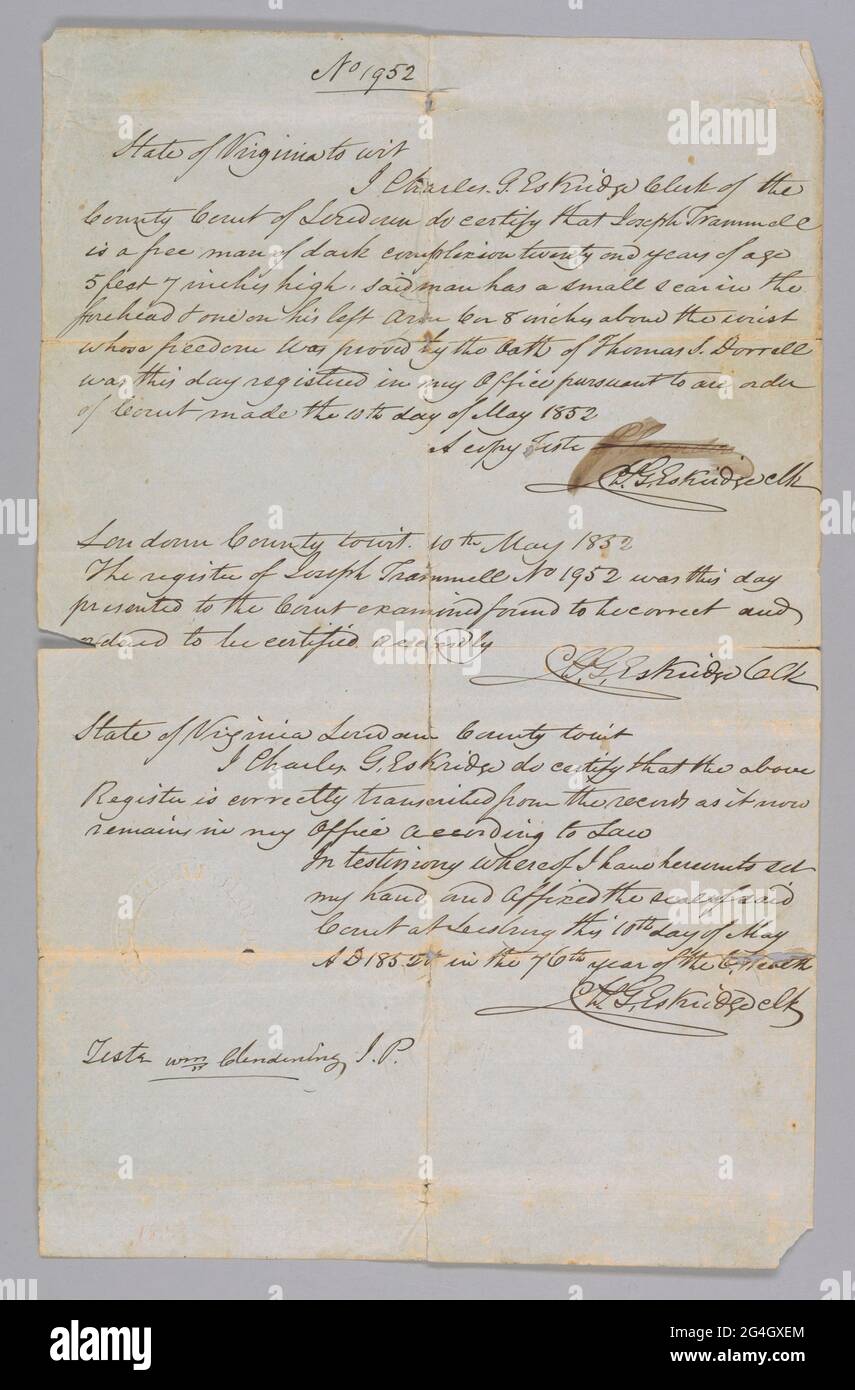 No 1952
State of Virginia to wit
I Charles. G. Eskridge Clerk of the
County Court of Loudoun do certify that Joseph Trammell
is a free man of dark complexion twenty one years of age
5 feet 7 inches high, said man has a small scar in the
forehead & one on his left Arm 6 or 8 inches above the wrist
whose freedom was proved by the Oath of Thomas S. Dorrell
was this day registered in my Office pursuant to an order
of Court made the 10th day of May 1852
A copy Teste
Ch. G. Eskridge clk
Loudoun County towit. 10th May 1852
The register of Joseph Trammell No 1952 was this day
presented to the Court examined found to be correct and
ordered to be certified accordly
Ch. G. Eskridge Clk
State of Virginia Loudoun County towit
I Charles G. Eskridge do certify that the above
Register is correctly transcribed from the records as it now
remains in my Office according to Law
In testimony whereof I have hereunto set
my hand and affixed the seal of said
Court at Leesburg this 10th day of May
A D 1852 in the 76th year of the C.Wealth
Ch. G. Eskridge clk
Teste Wm Clendening J. P.
alamy
Image ID: 2G4GXEM
www.alamy.com